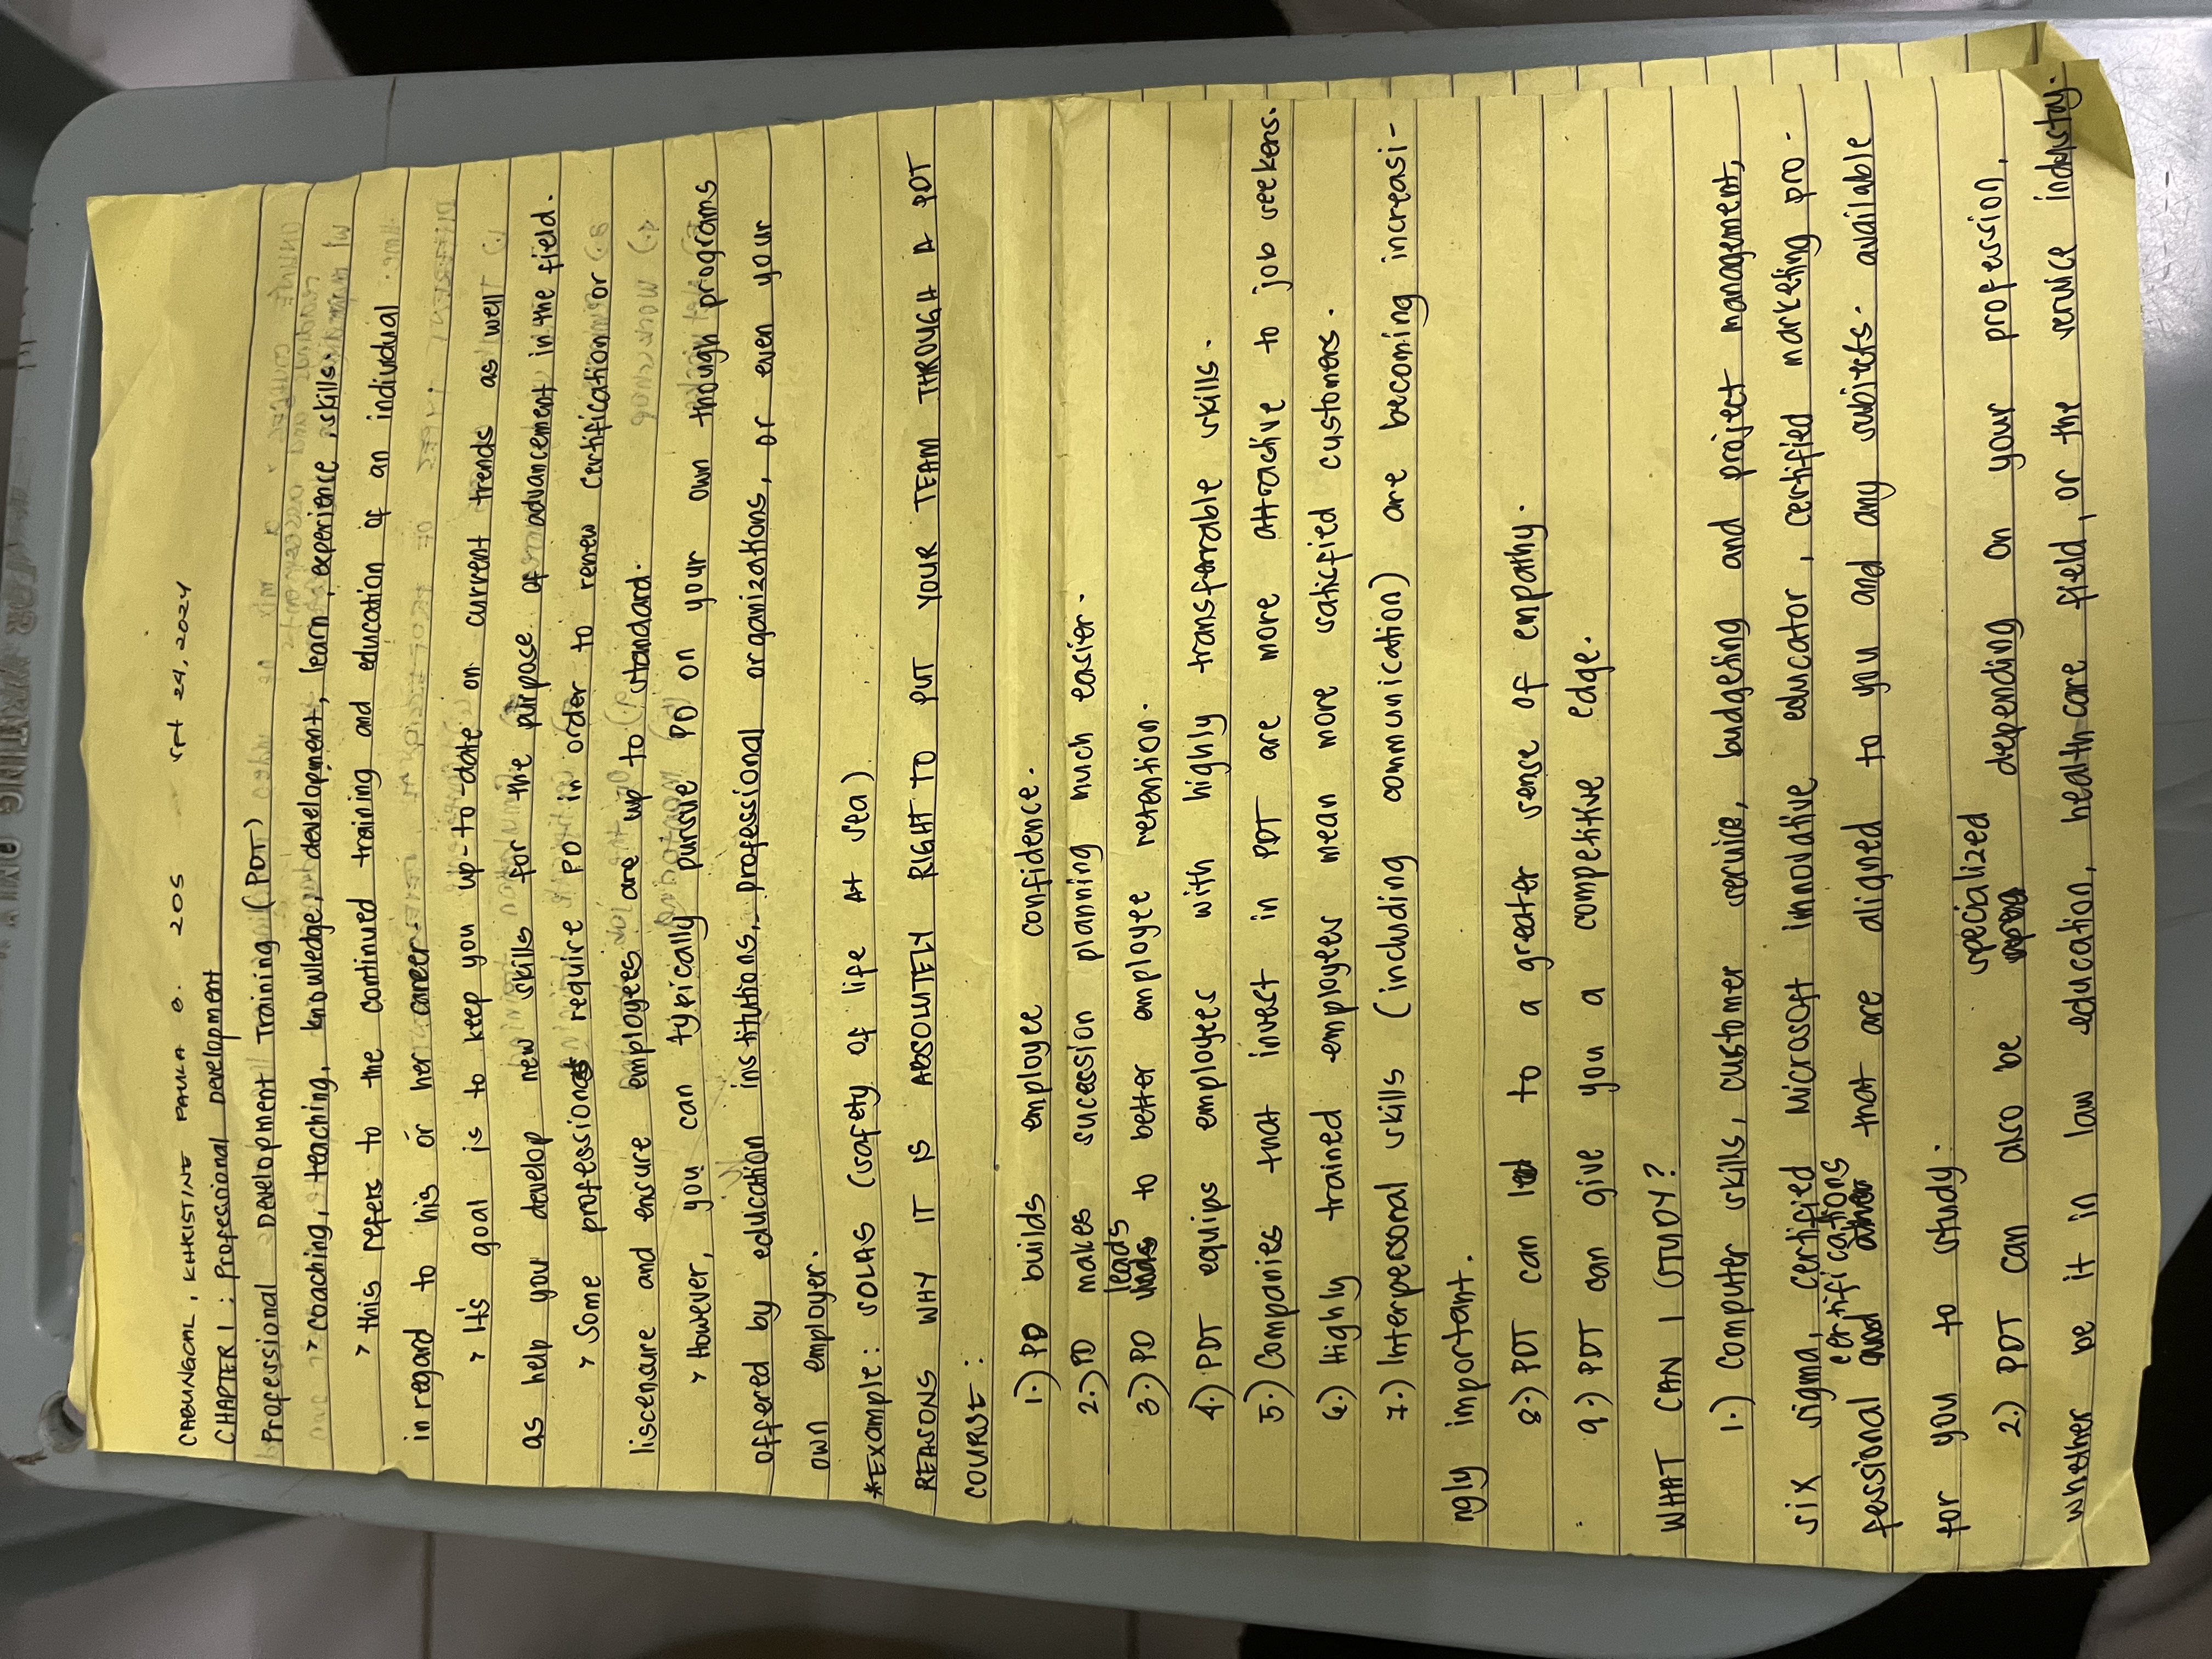 CABUNGCAL, KHRISTINE PAULA B. 205 Spt 24, 2024
CHAPTER 1 : Professional Development
Professional Development Training (PDT)
> coaching, teaching, knowledge, development, learn, experience, skills.
> this refers to the continued training and education of an individual
in regard to his or her career.
> It's goal is to keep you up-to-date on current trends as well
as help you develop new skills for the purpose of advancement in the field.
> Some professions require PD in order to renew certification or
liscensure and ensure employees are up to standard.
> However, you can typically pursue PD on your own though programs
offered by education institutions, professional organizations, or even your
own employer.
*Example: SOLAS (safety of life At sea)
REASONS WHY IT IS ABSOLUTELY RIGHT TO PUT YOUR TEAM THROUGH A PDT
COURSE :
1.) PD builds employee confidence.
2.) PD makes sucession planning much easier.
leads
3.) PD to better employee retention.
4.) PDT equips employees with highly transferrable skills.
5.) Companies that invest in PDT are more attractive to job seekers.
6.) Highly trained employees mean more satisfied customers.
7.) Interpersonal skills (including communication) are becoming increasi-
ngly important.
8.) PDT can lead to a greater sense of empathy.
9.) PDT can give you a competitive edge.
WHAT CAN I STUDY?
1.) Computer skills, customer service, budgeting and project management,
six sigma, certified Microsoft innovative educator, certified marketing pro-
certifications
fessional and other that are aligned to you and any subjects. available
for you to study.
specialized
2.) PDT can also be depending on your profession,
whether be it in law education, health care field, or the service industry.